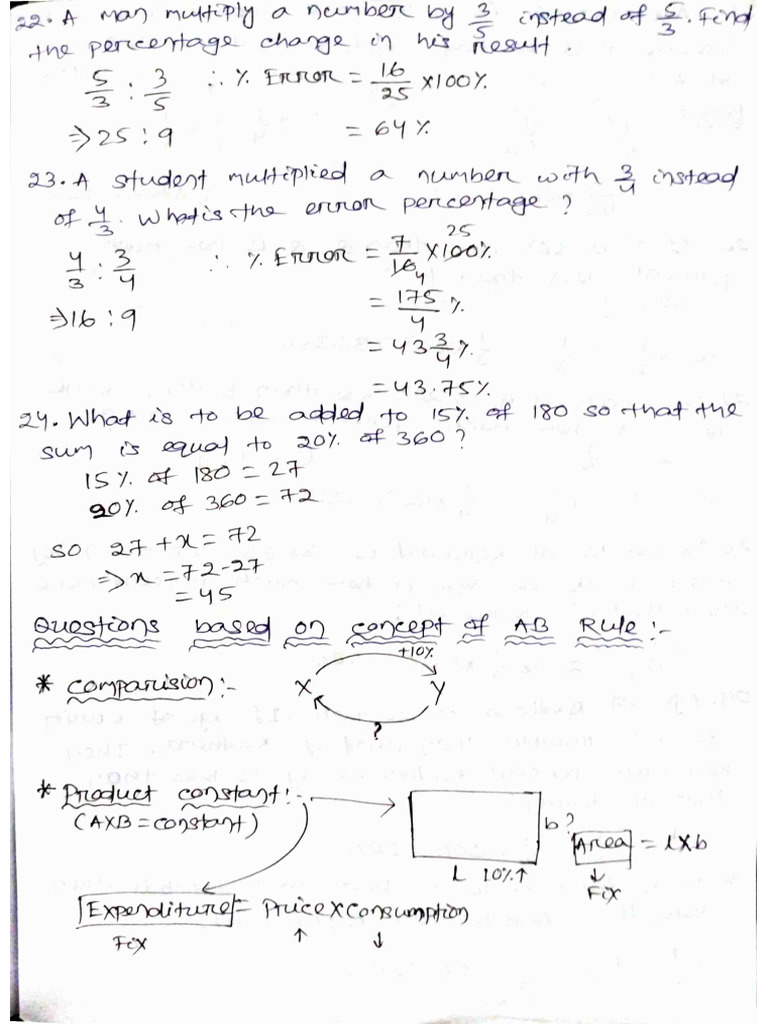 22. A man multiply a number by 3/5 instead of 5/3. Find
the percentage change in his result.
5/3 : 3/5 ∴ % Error = 16/25 ×100%
⇒ 25 : 9 = 64%
23. A student multiplied a number with 3/4 instead
of 4/3. What is the error percentage?
4/3 : 3/4 ∴ % Error = 7/16 × 100% 25 4
⇒ 16 : 9 = 175/4 %
= 43 3/4 %
= 43.75%
24. What is to be added to 15% of 180 so that the
sum is equal to 20% of 360?
15% of 180 = 27
20% of 360 = 72
so 27 + x = 72
⇒ x = 72-27
= 45
Questions based on concept of AB Rule :-
+10%
* comparision :- X Y
?
* Product constant :-
(A×B = constant) b? Area = l×b
L 10%↑ ↓
Fix
Expenditure = Price × consumption
Fix ↑ ↓